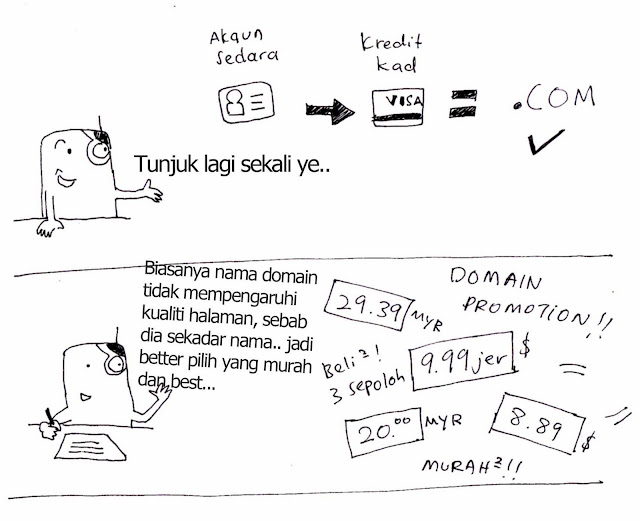 Akaun
Sedara
Kredit
kad
VISA
= .COM
Tunjuk lagi sekali ye..
Biasanya nama domain
tidak mempengaruhi
kualiti halaman, sebab
dia sekadar nama.. jadi
better pilih yang murah
dan best...
DOMAIN
PROMOTION!!
29.39 MYR
Beli²!
3 sepoloh
9.99 jer $
20.00 MYR
8.89 $
MURAH²!!